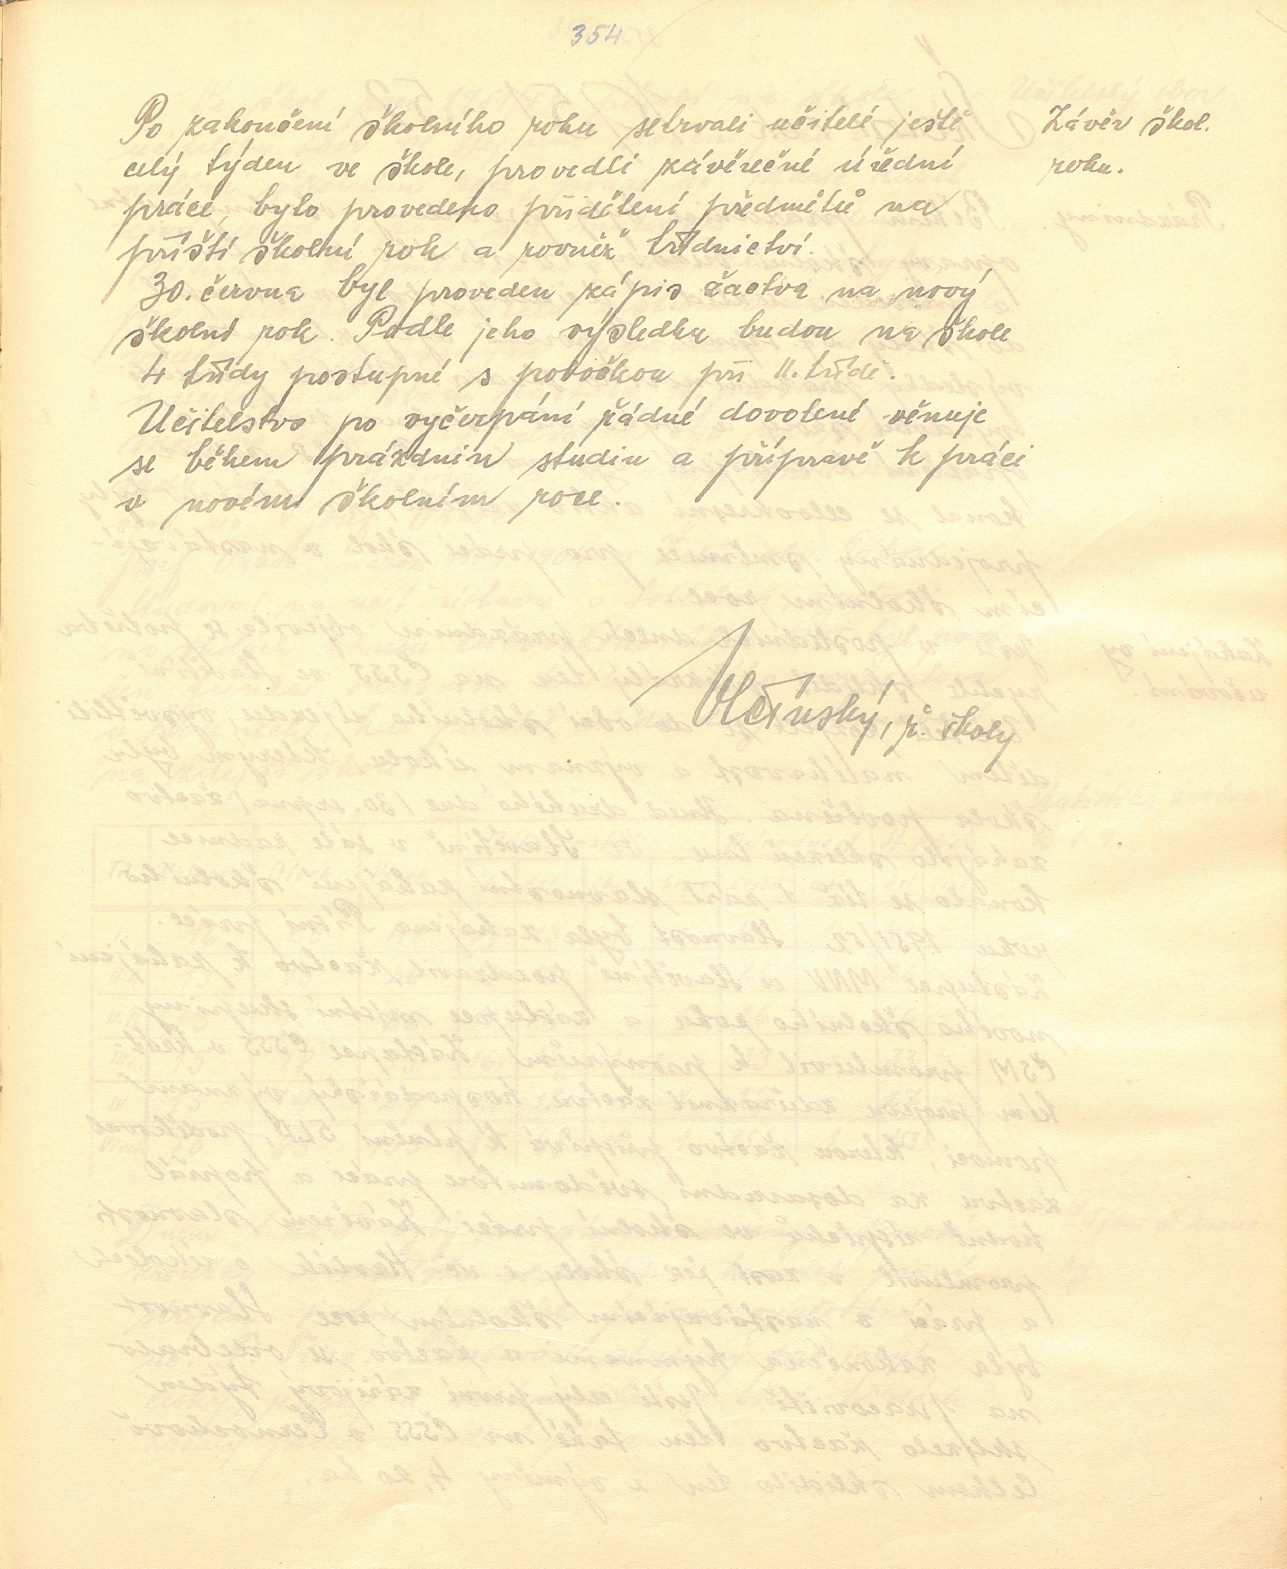 354
Po zakončení školního roku setrvali učitelé ještě
celý týden ve škole, provedli závěrečné úřední
práce, bylo provedeno přidělení předmětů na
příští školní rok a rovněž třídnictví.
30. června byl proveden zápis žactva na nový
školní rok. Podle jeho výsledku budou na škole
4 třídy postupné s pobočkou při II. třídě.
Učitelstvo po vyčerpání řádné dovolené věnuje
se během prázdnin studiu a přípravě k práci
v novém školním roce.
Závěr škol.
roku.
ř. školy